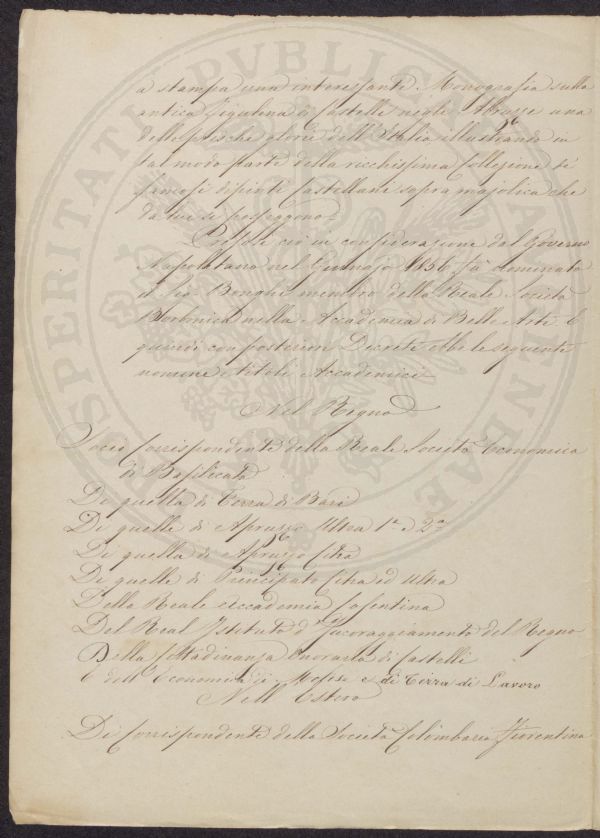 a stampa una interessante Monografia sulla
antica figulina di Castelli negli Abruzzi una
delle prische glorie dell'Italia illustrando in
tal modo parte della ricchissima Collezione de'
famosi dipinti Castellani sopra majolica che
da lui si posseggono.
Presosi ciò in considerazione dal Governo
Napolitano nel Gennajo 1856 fu nominato
il Sig. Bonghi membro della Reale Società
Borbonica nella Accademia di Belle Arti. E
quindi con posteriori Decreti ebbe le seguenti
nomine e titoli Accademici.
Nel Regno
Socio Corrispondente della Reale Società Economica
di Basilicata
Di quella di Terra di Bari
Di quelle di Apruzzo Ultra 1a e 2a
Di quella di Apruzzo Citra
Di quelle di Principato Citra ed Ultra
Della Reale Accademia Cosentina
Del Real Istituto d'Incoraggiamento del Regno
Della Cittadinanza Onoraria di Castelli
E dell'Economica di Molise e di Terra di Lavoro
Nell'Estero
Di Corrispondente della Società Colombaria Fiorentina
PROSPERITATI PUBLICAE AUGENDAE